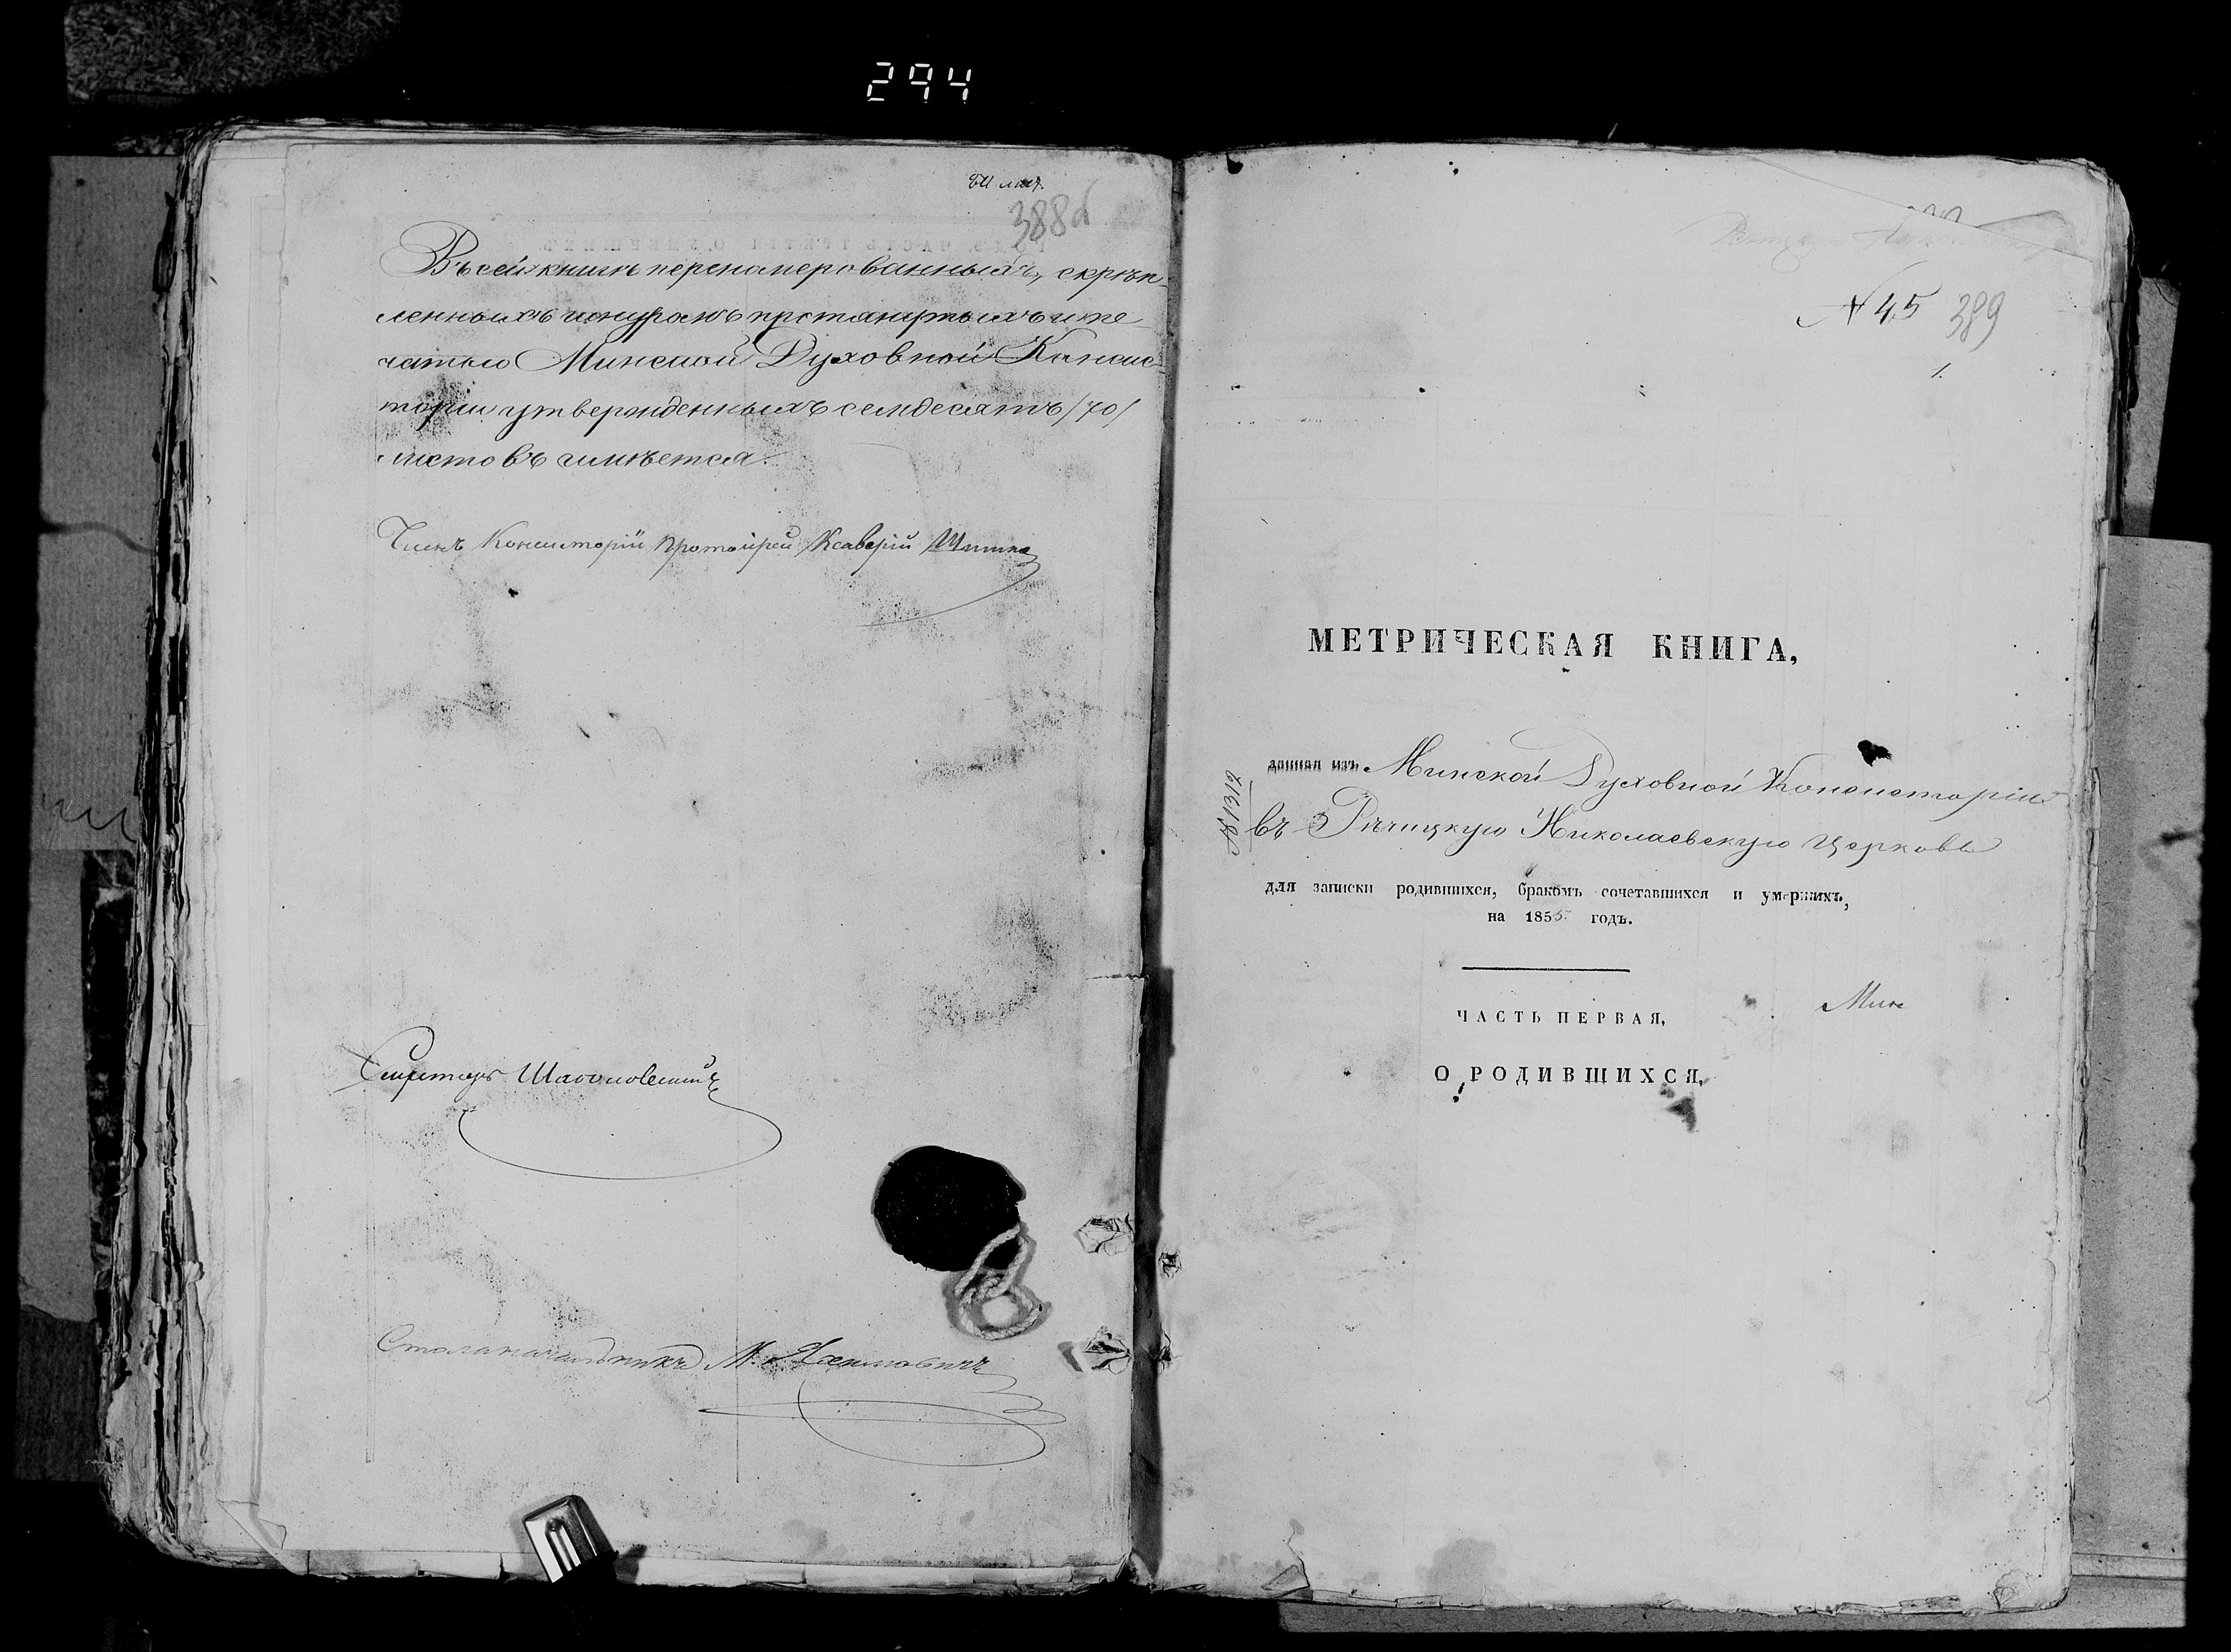 294
388об
Въ сей книгѣ перенамерованныхъ, скрѣп-
ленныхъ шнуромъ
чатью Минской Духовной Консис-
торіи утвержденныхъ семдесятъ /70/
листовъ имѣется.
Членъ Консисторіи Протоіерей Ксаверій
Секретарь
Столаначальникъ М.
N 45 389
1.
МЕТРИЧЕСКАЯ КНИГА,
данная изъ Минской Духовной Консисторіи
№ 1312
въ Рѣчицкую Николаевскую церковь
для записки родившихся, бракомъ сочетавшихся и умершихъ,
на 1855 годъ.
Мин
ЧАСТЬ ПЕРВАЯ,
О РОДИВШИХСЯ.